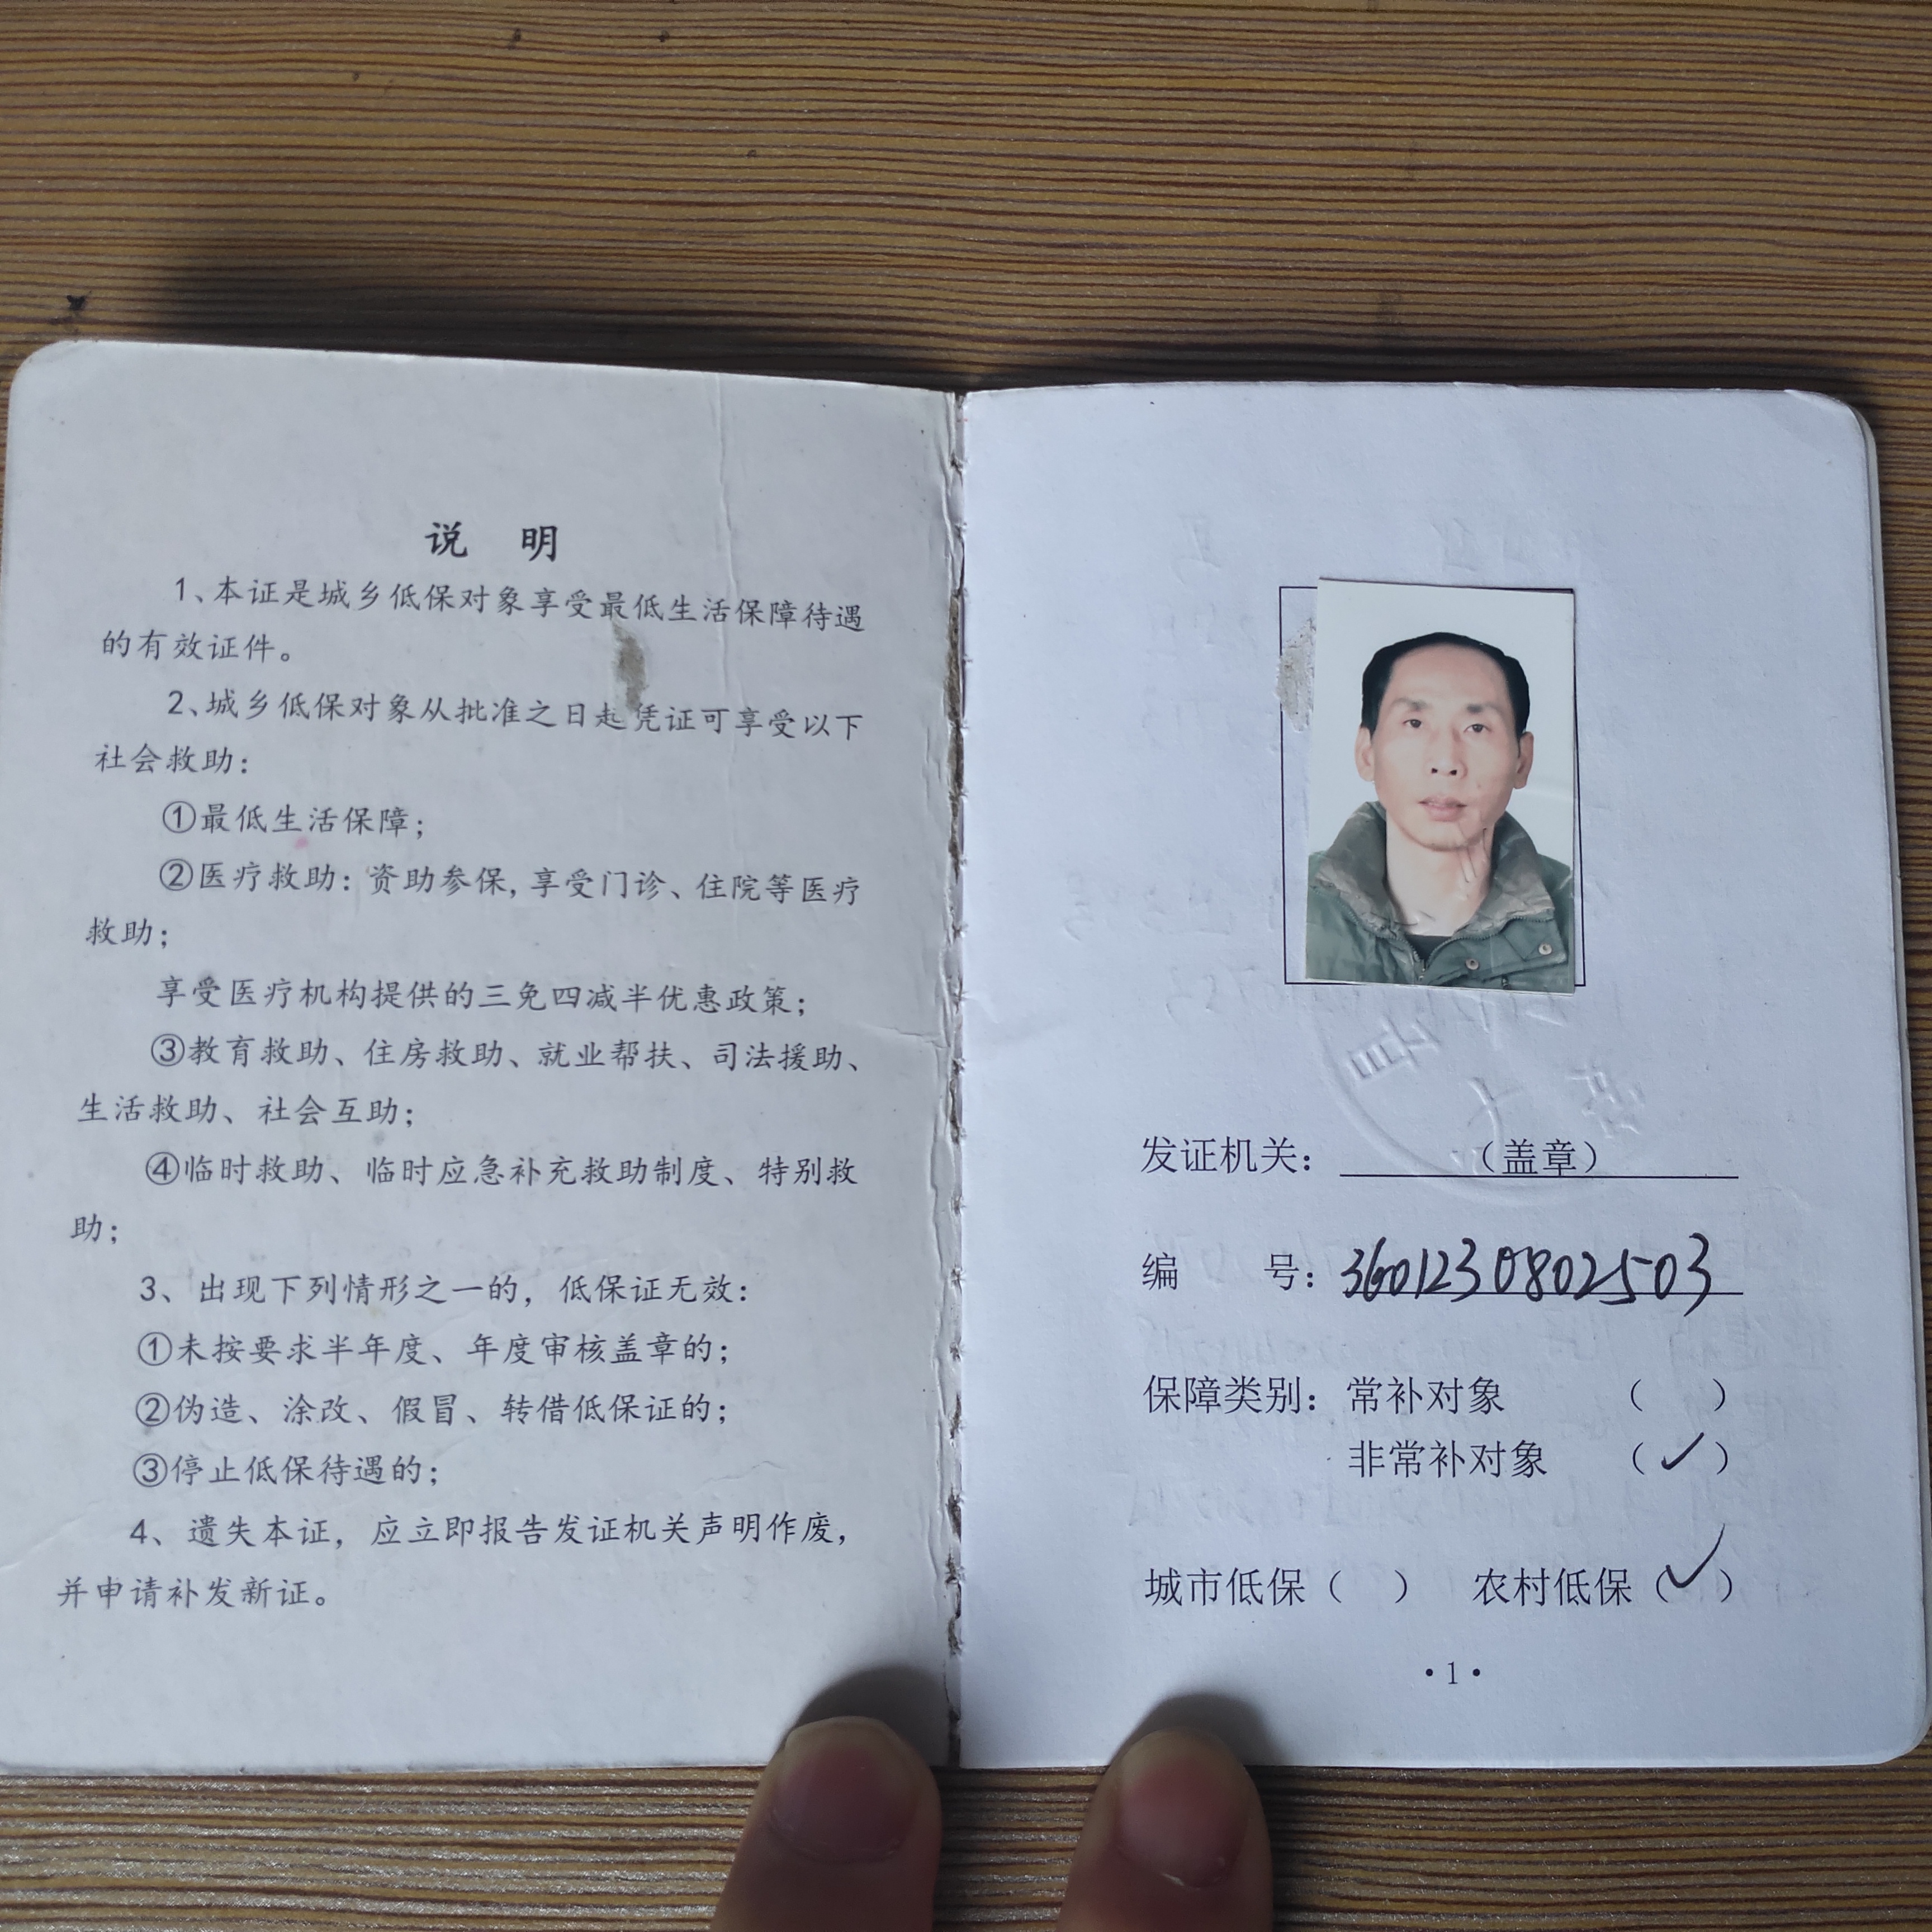 说 明
1、本证是城乡低保对象享受最低生活保障待遇
的有效证件。
2、城乡低保对象从批准之日起凭证可享受以下
社会救助:
①最低生活保障;
②医疗救助:资助参保,享受门诊、住院等医疗
救助;
享受医疗机构提供的三免四减半优惠政策;
③教育救助、住房救助、就业帮扶、司法援助、
生活救助、社会互助;
④临时救助、临时应急补充救助制度、特别救
助;
3、出现下列情形之一的,低保证无效:
①未按要求半年度、年度审核盖章的;
②伪造、涂改、假冒、转借低保证的;
③停止低保待遇的;
4、遗失本证,应立即报告发证机关声明作废,
并申请补发新证。
发证机关:(盖章)
编 号:3601230802503
保障类别:常补对象 ( )
非常补对象 (✓)
城市低保( ) 农村低保(✓)
·1·